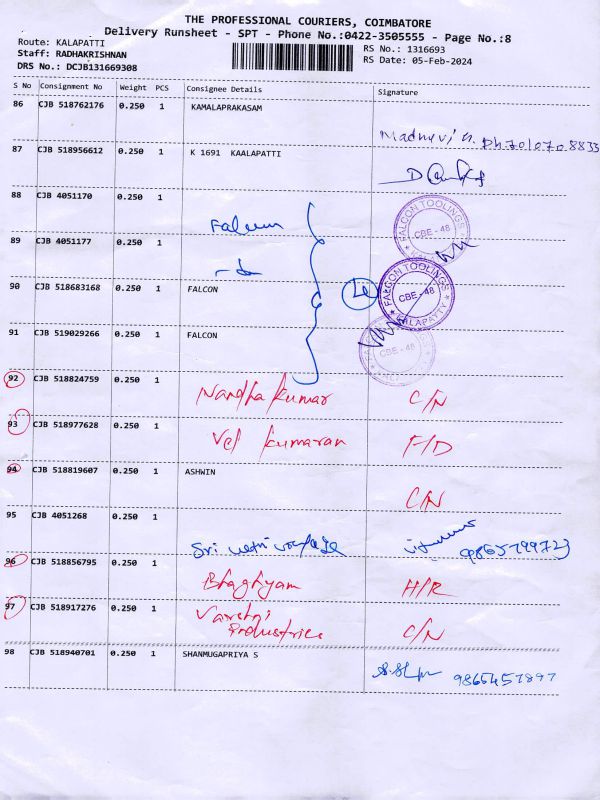 THE PROFESSIONAL COURIERS, COIMBATORE
Delivery Runsheet - SPT - Phone No.:0422-3505555 - Page No.:8
Route: KALAPATTI
RS No.: 1316693
Staff: RADHAKRISHNAN
RS Date: 05-Feb-2024
DRS No.: DCJB131669308
S No Consignment No Weight PCS Consignee Details Signature
86 CJB 518762176 0.250 1 KAMALAPRAKASAM
Ph.701070.8833
87 CJB 518956612 0.250 1 K 1691 KAALAPATTI
88 CJB 4051170 0.250 1 Falcon
FALCON TOOLINGS CBE - 48 KALAPATTY
89 CJB 4051177 0.250 1
90 CJB 518683168 0.250 1 FALCON
FALCON TOOLINGS CBE - 48 KALAPATTY
91 CJB 519029266 0.250 1 FALCON
CBE - 48
92 CJB 518824759 0.250 1 Nandha kumar C/N
93 CJB 518977628 0.250 1 Vel kumaran F/D
94 CJB 518819607 0.250 1 ASHWIN C/N
95 CJB 4051268 0.250 1 Sri vetri 9865799723
96 CJB 518856795 0.250 1 Bhaghyam H/R
97 CJB 518917276 0.250 1 Varshni C/N
Industries
98 CJB 518940701 0.250 1 SHANMUGAPRIYA S 9865457897